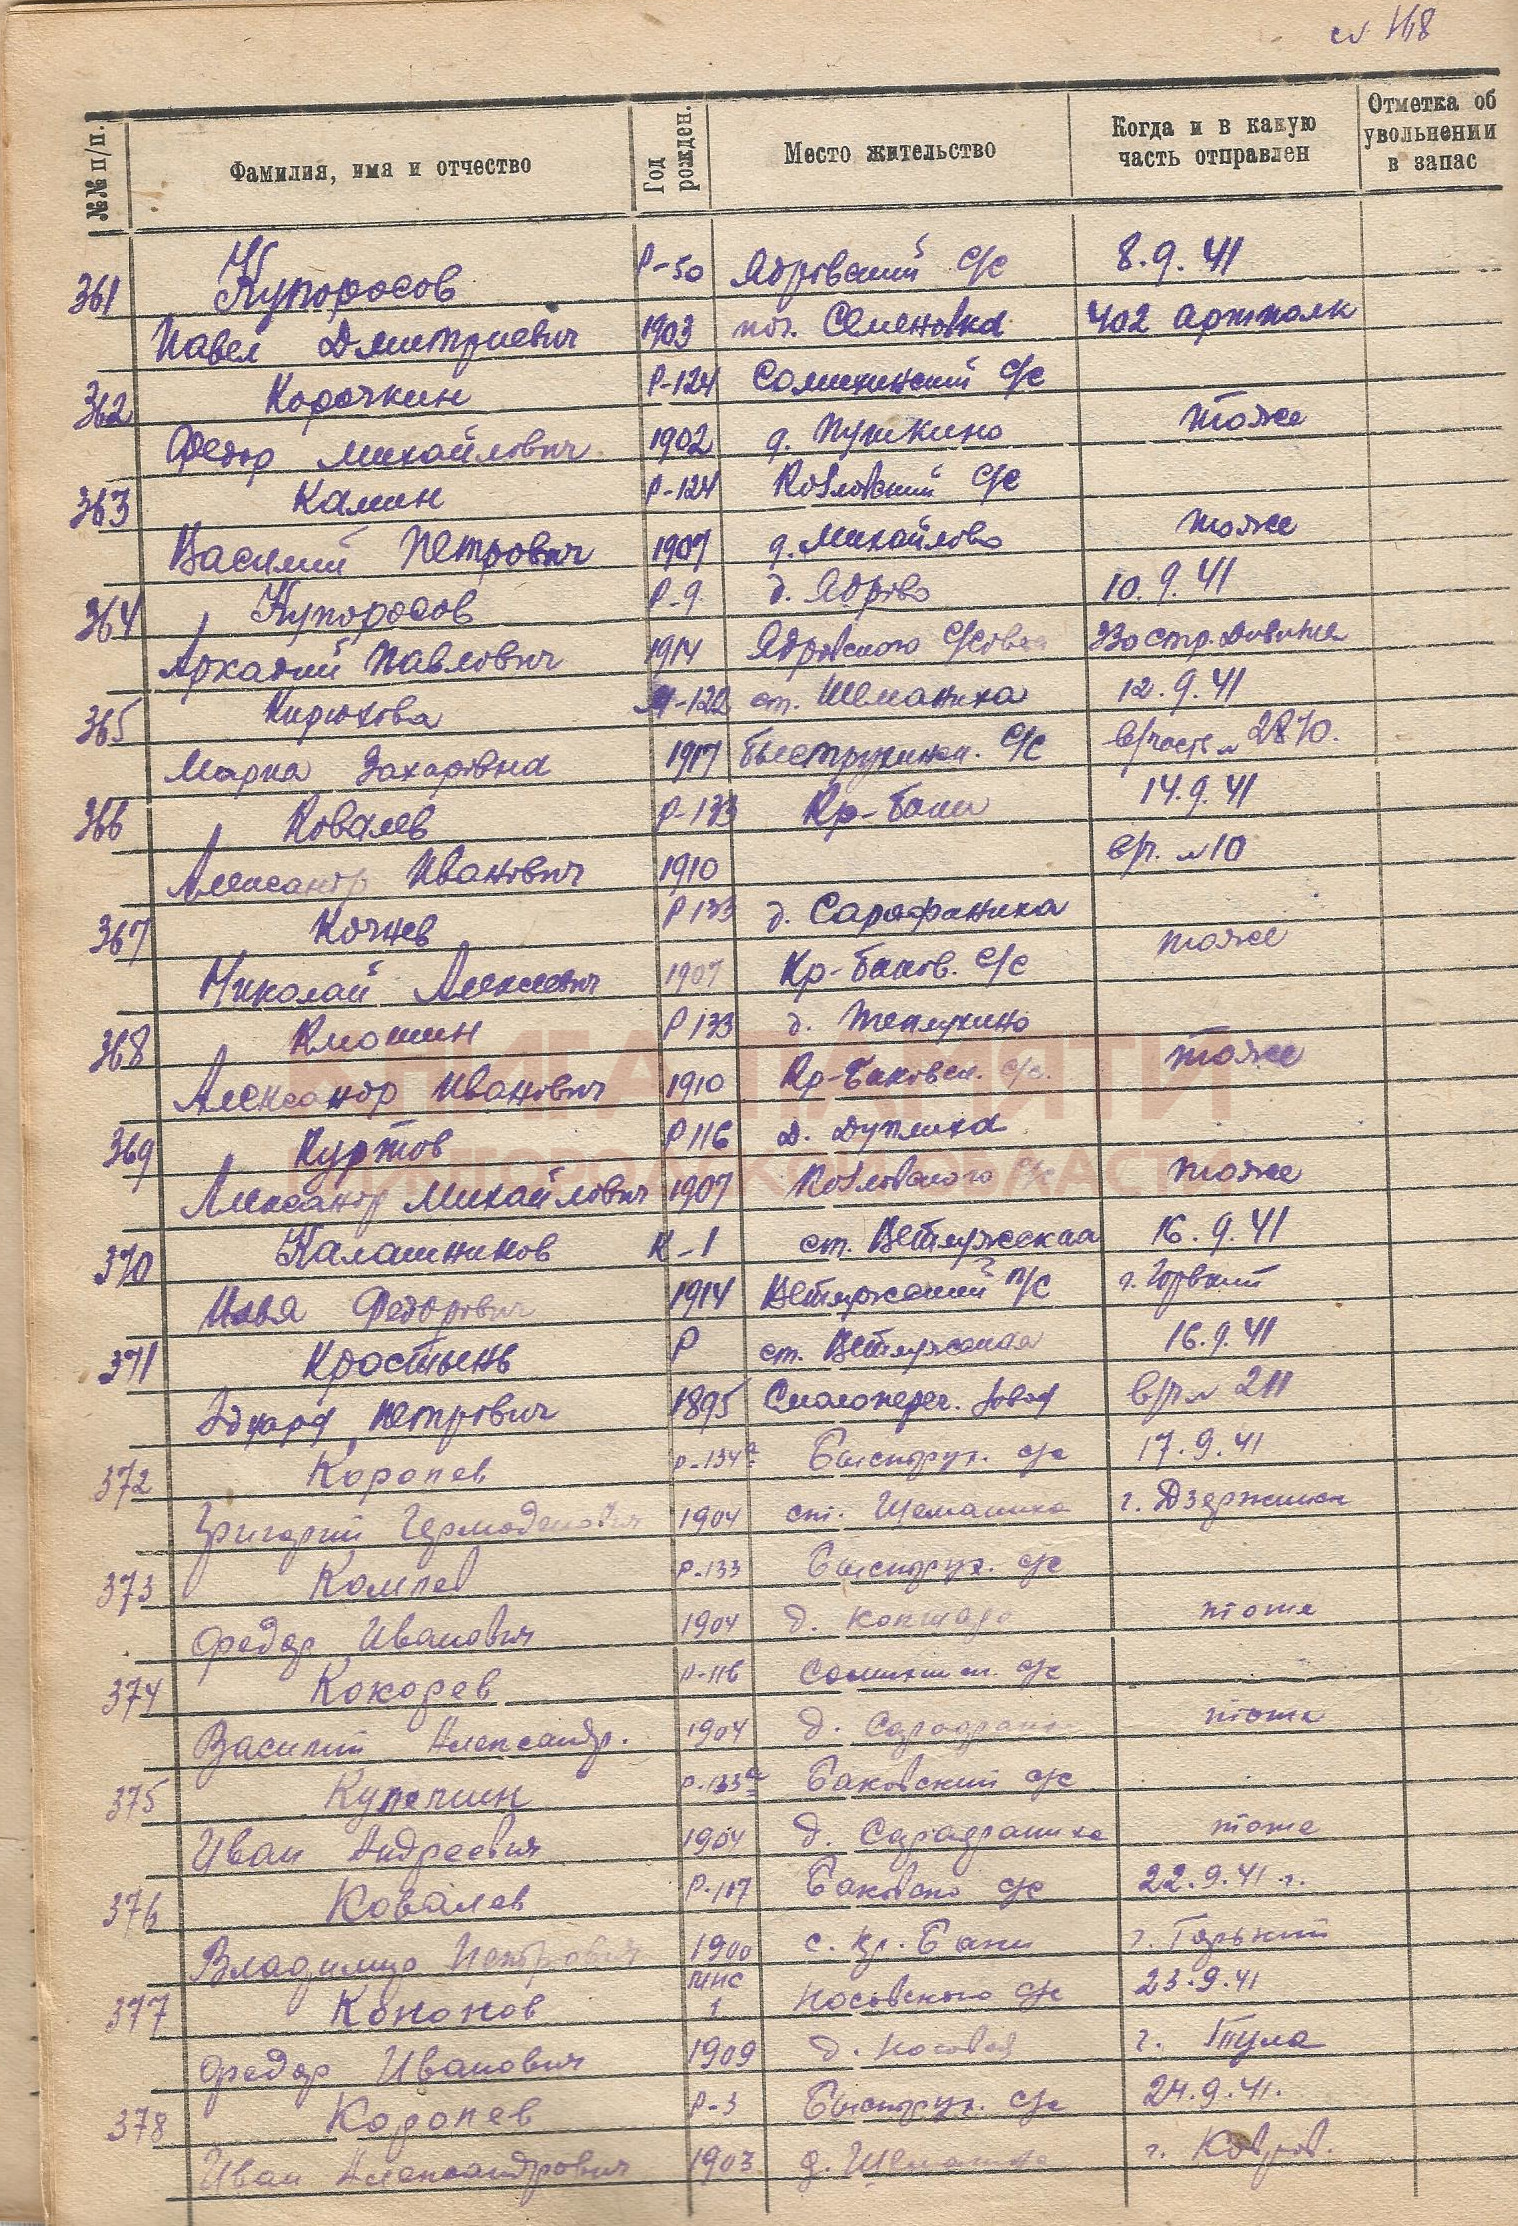 №№ п/п. Фамилия, имя и отчество Год рожден. Место жительство Когда и в какую часть отправлен Отметка об увольнении в запас
361 Купоросов Р-50 Ядровский с/с 8.9.41
Павел Дмитриевич 1903 поч. Семеновка 402 артполк
362 Корочкин Р-124 Сомихинский с/с
Федор Михайлович 1902 д. Пушкино тоже
363 Камин Р-124 Козловский с/с
Василий Петрович 1907 д. Михайлово тоже
364 Купоросов Р-9 д. Ядрово 10.9.41
Аркадий Павлович 1914 Ядровского стр.
365 Кирюхова -122 ст. Шеманиха 12.9.41
Мария Захаровна 1917 Быструхинск. с/с в/часть № 2870.
366 Ковалев Р-133 Кр-Баки 14.9.41
Александр Иванович 1910 в/ч. №10
367 Кочнев Р133 д. Сарафаниха
Николай Алексеевич 1907 Кр-Баков. с/с тоже
368 Клюшин Р133 д.
Александр Иванович 1910 Кр-Баковск. с/с. тоже
369 Куртов Р116 д. Дуплиха
Александр Михайлович 1907 Козловского с/с тоже
370 Калашников К-1 ст. Ветлужская 16.9.41
Илья Федорович 1914 Ветлужский п/с г. Горький
371 Кростынь Р ст. Ветлужская 16.9.41
Эдуард Петрович 1895 завод в/ч № 211
372 Коропев Р-134а Быструх. с/с 17.9.41
Григорий 1904 ст. Шеманиха г. Дзержинск
373 Комлев Р-133 Быструх. с/с
Федор Иванович 1904 д. тоже
374 Кокорев Р-116 с/с
Василий Александр. 1904 д. тоже
375 Р-133а Баковский с/с
Иван Андреевич 1904 д. Сарафаниха тоже
376 Ковалев Р-117 Баковско с/с 22.9.41 г.
Владимир Петрович 1900 с. Кр. Баки г. Горький
377 Кононов 1 Носовского с/с 23.9.41
Федор Иванович 1909 д. Носовая г. Тула
378 Коропев Р-3 Быструх. с/с 24.9.41.
Иван Александрович 1903 д. г. Ковров.
КНИГА ПАМЯТИ
НИЖЕГОРОДСКОЙ ОБЛАСТИ